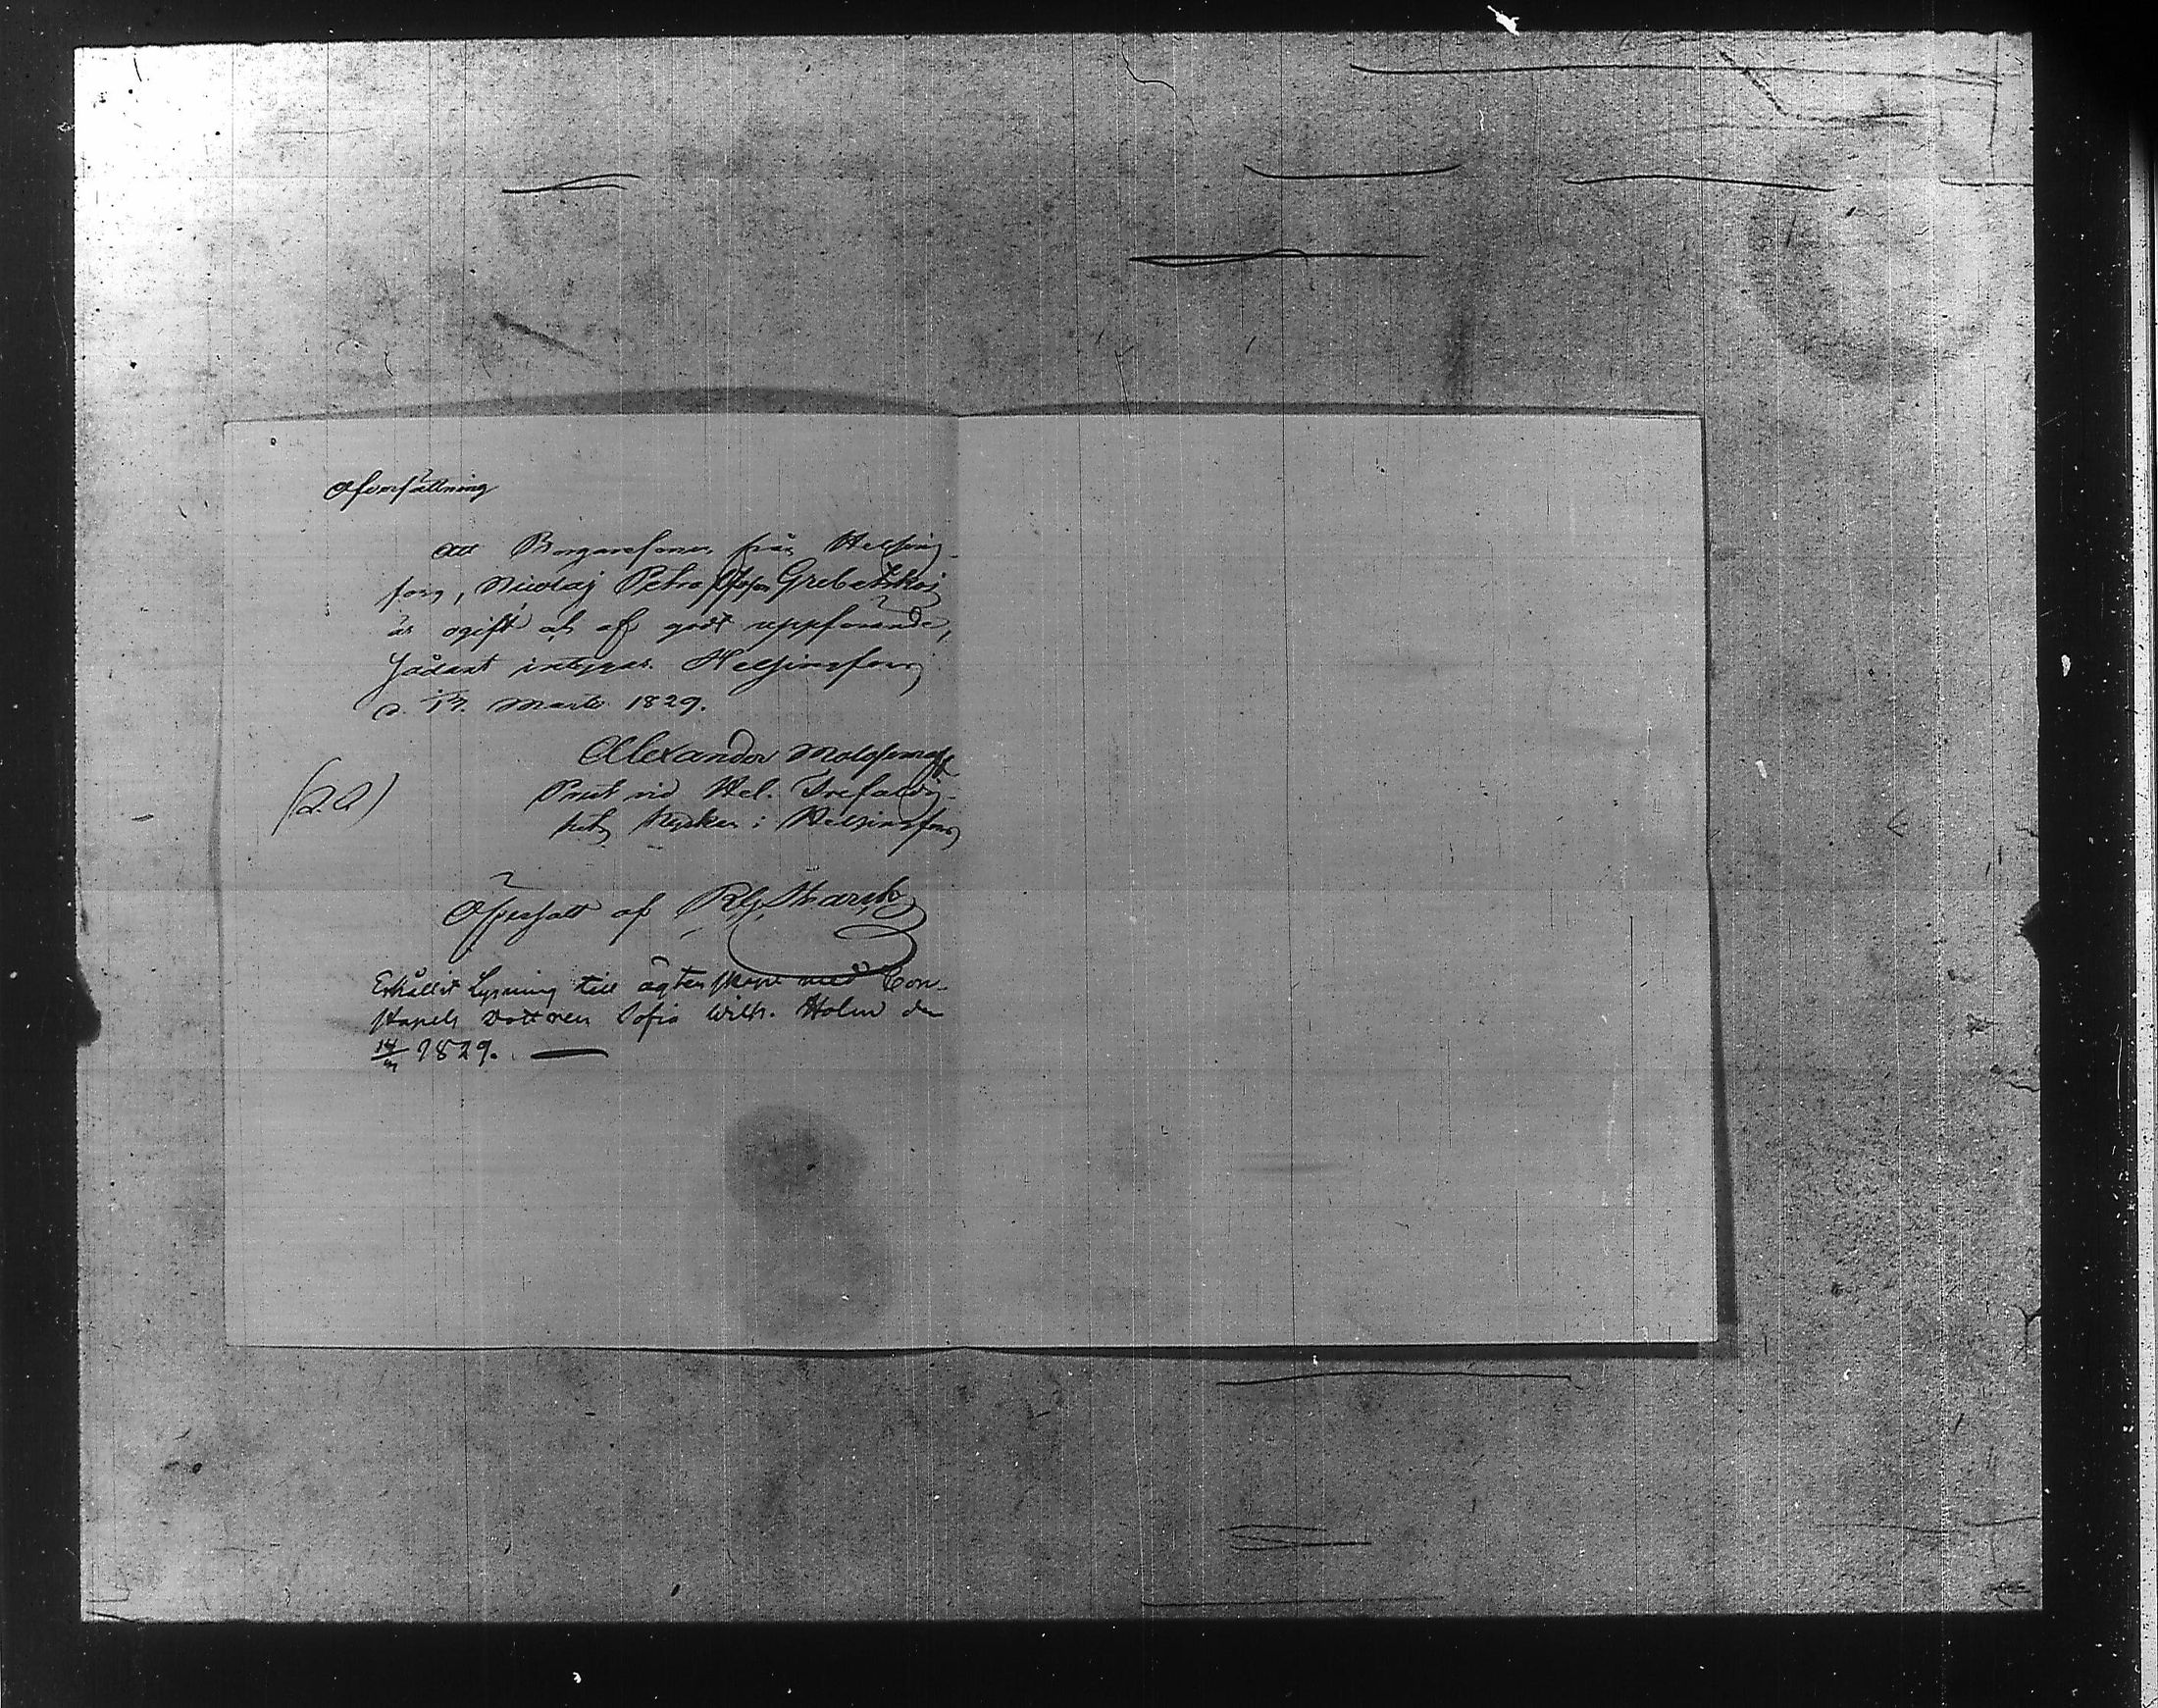 Öfversättning
Att Borgaresonen från Helsing-
fors, Nicolaj Petra Grebetskoj
är ogift och af godt uppförande,
sådant intygas. Helsingfors
d. 13. Martii 1829.
Alexander
(L.S.) Prest vid Hel. Trefaldig-
hets Kyrkan i Helsingfors
Öfversatt af
Erhållit Lysning till ägtenskape med Con-
stapels Dottren Sofia Wilh. Holm den
14/3 1829.